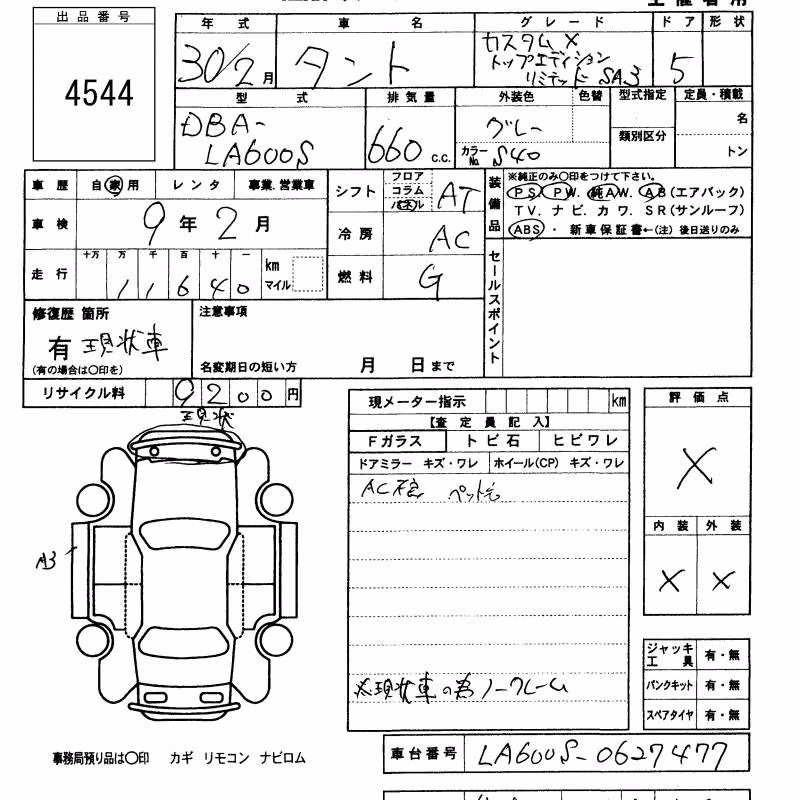 出品番号
4544
年式
30/2月
車名
タント
グレード
カスタムX
トップエディション
リミテッド SA3
ドア
5
形状
型式
DBA-
LA600S
排気量
660 c.c.
外装色
グレー
色替
カラーNo. S40
型式指定
類別区分
定員・積載
名
トン
車歴
自家用
レンタ
事業.営業車
車検
9年2月
走行
十万 万 千 百 十 一
11640
km
マイル
シフト
フロア
コラム
パネル
AT
冷房
AC
燃料
G
装備品
※純正のみ○印をつけて下さい。
PS. PW. 純AW. AB(エアバック)
TV. ナビ. カワ. SR(サンルーフ)
ABS・ 新車保証書←(注) 後日送りのみ
セールスポイント
修復歴 箇所
有 現状車
(有の場合は○印を)
注意事項
名変期日の短い方 月 日まで
リサイクル料
9200円
現状
A3
現メーター指示
km
【査定員記入】
Fガラス
トビ石
ヒビワレ
ドアミラー キズ・ワレ
ホイール(CP) キズ・ワレ
AC不良 ペット毛
※現状車の為ノークレーム
評価点
X
内装
外装
X
X
ジャッキ工具
有・無
パンクキット
有・無
スペアタイヤ
有・無
事務局預り品は○印 カギ リモコン ナビロム
車台番号
LA600S-0627477